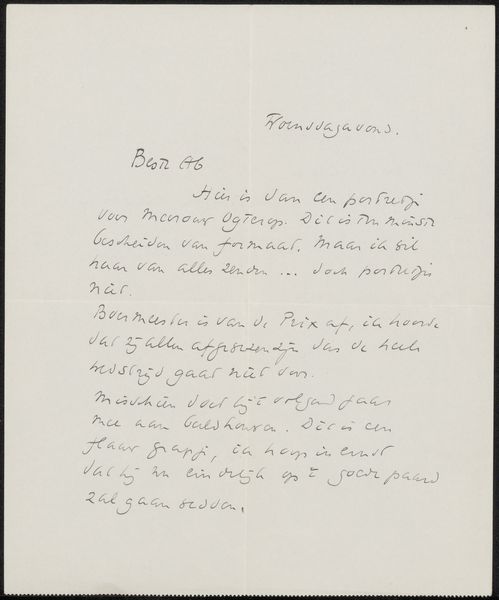 Woensdagavond.
Beste Ab
Hier is dan een portretje
voor mevrouw Ugterop. Dit is ten minste
bescheiden van formaat. Maar ik wil
haar van alles zenden ... doch portretje
niet.
Boermeester is van de Prix af, ik hoorde
dat zij allen afgewezen zijn dus de hele
wedstrijd gaat niet door.
Misschien doet hij 't volgend jaar
mee aan beeldhouwen. Dit is een
flauw grapje, ik hoop in ernst
dat hij nu eindelijk op 't goede paard
zal gaan wedden.